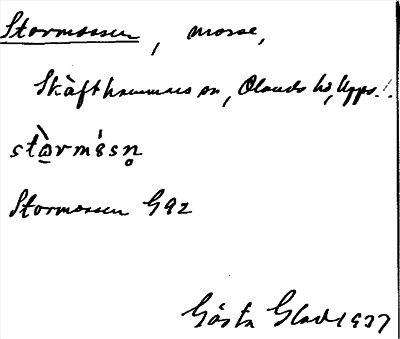 Stormossen, mosse,
Skäfthammars sn, Olands hd, Upps. l.
stòrmósn̥
Stormossen G92
Gösta Glad 1937